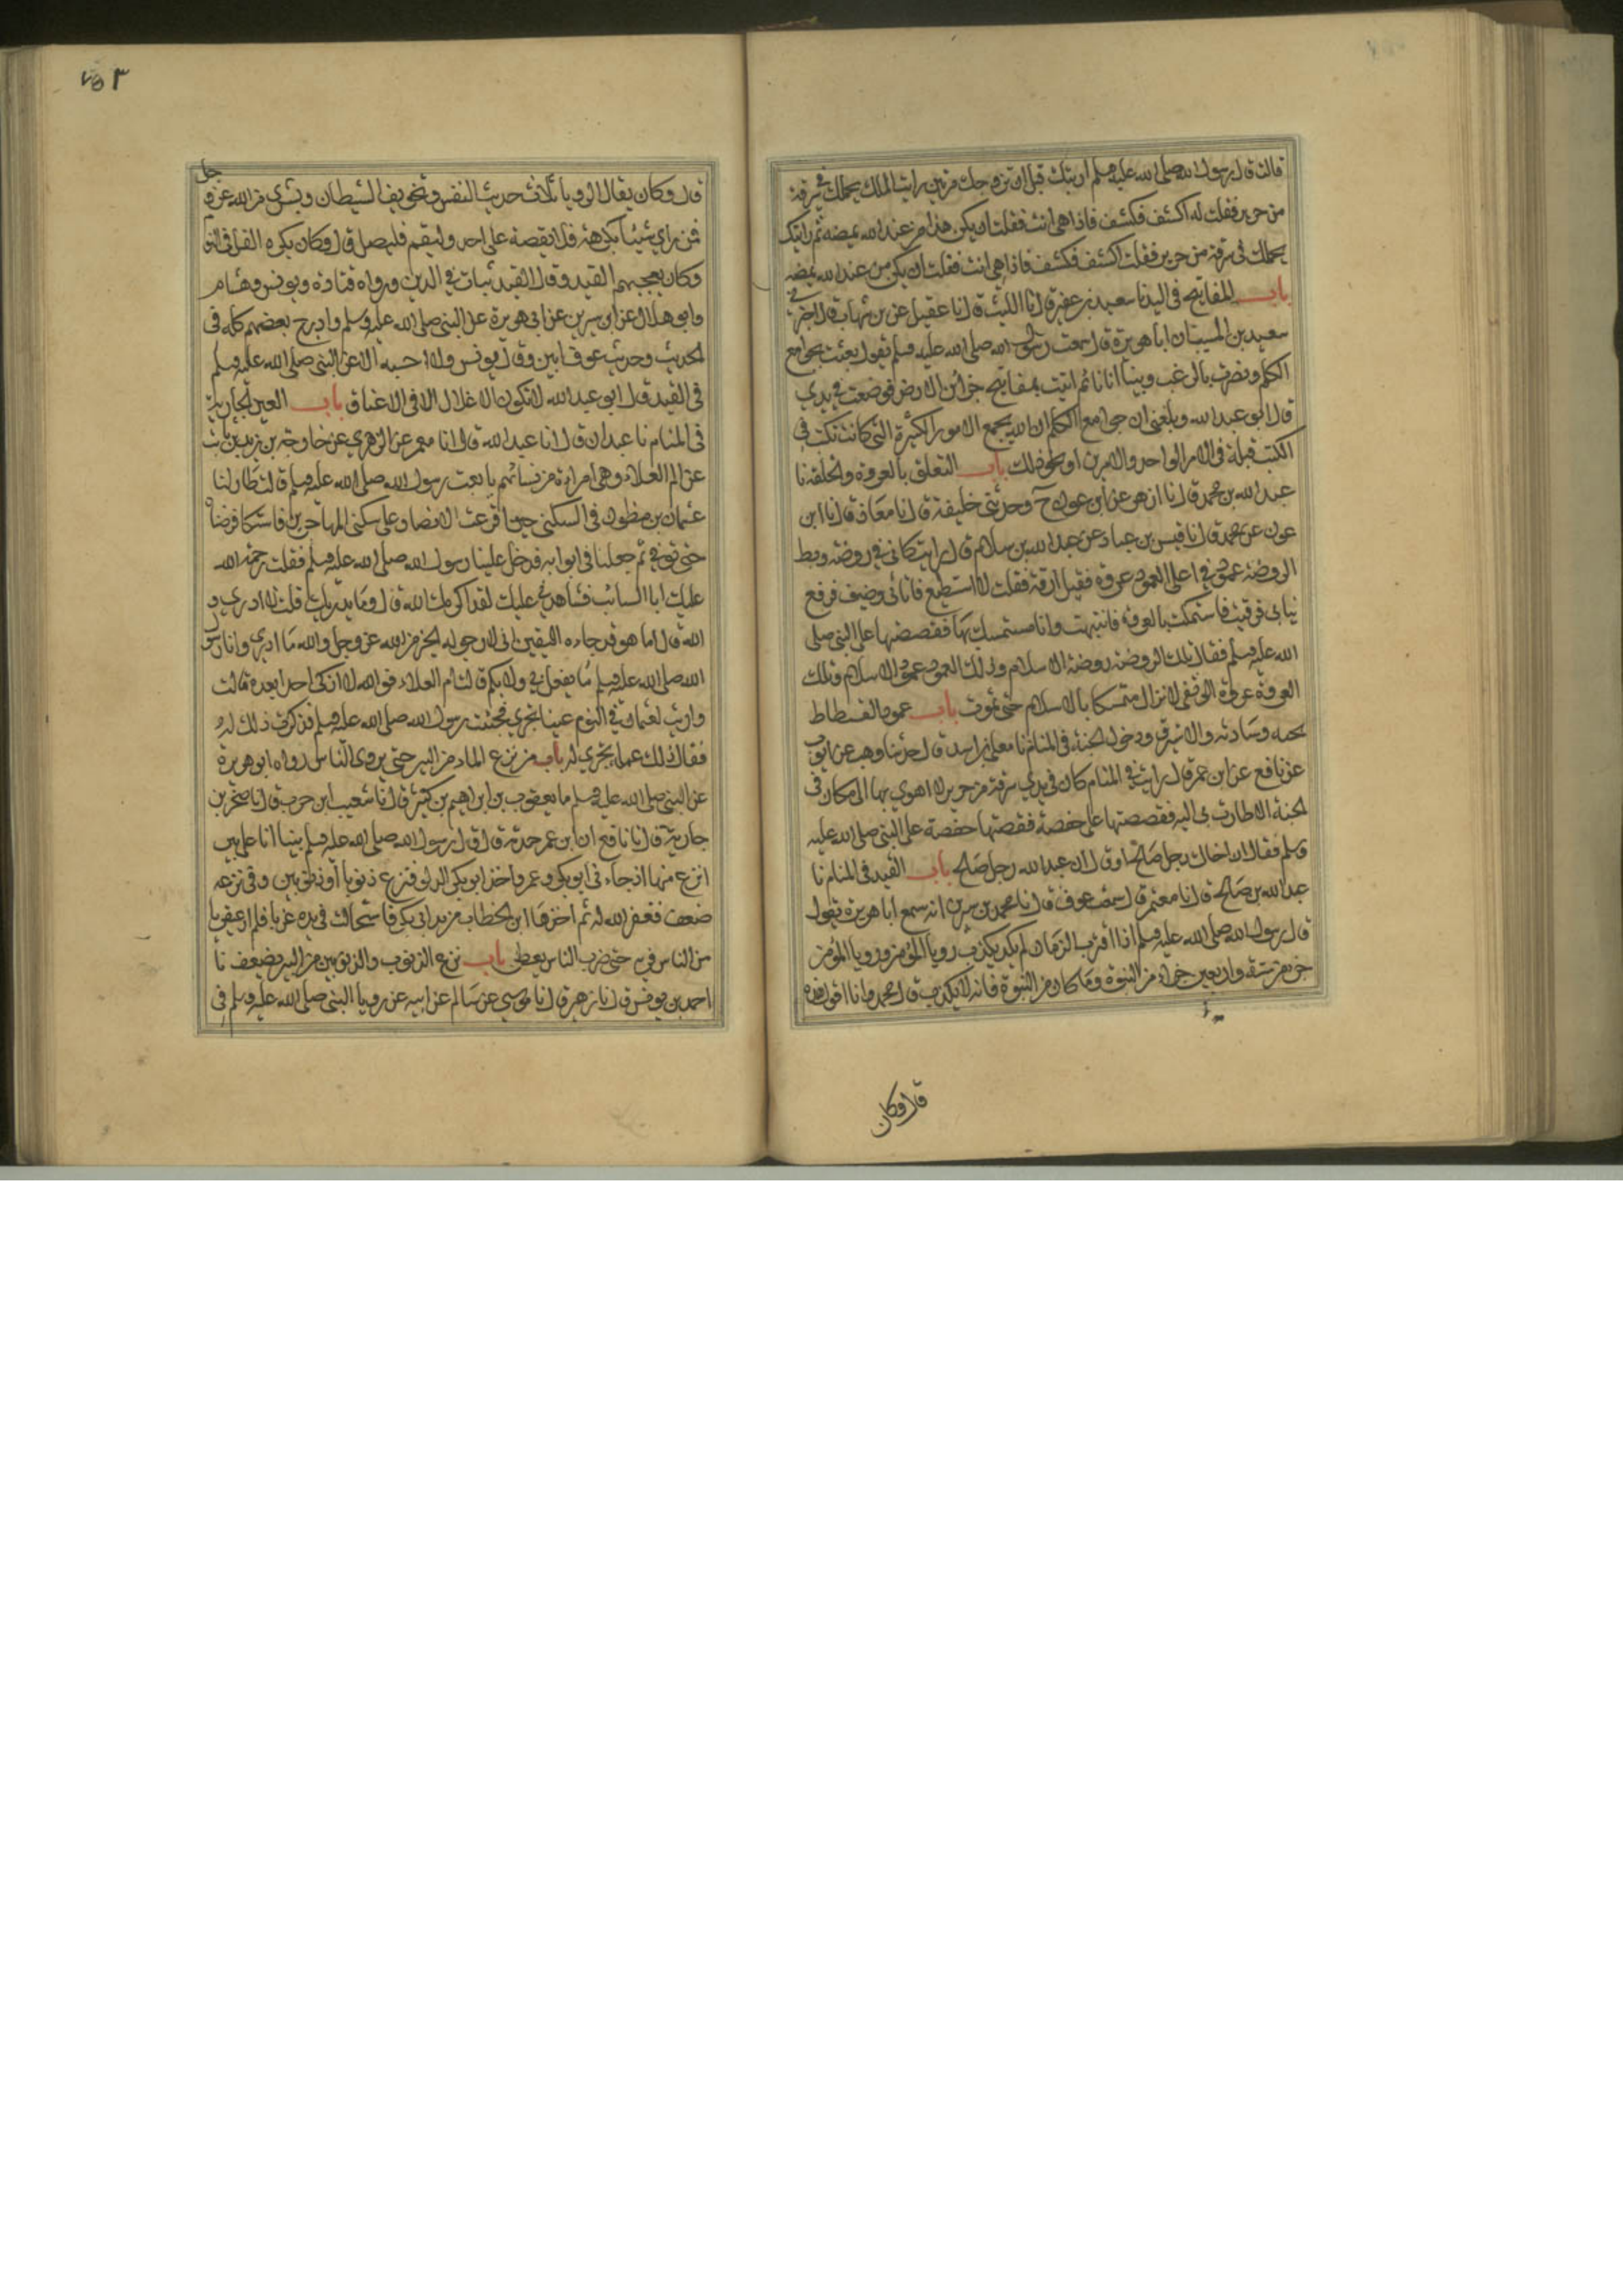 قالت قال رسول الله صلى الله عليه وسلم اريتك قبل ان تزوجك مرتين رايت الملك يحملك في سرقة
من حرير فقلت له اكشف فكشف فاذا هي انت فقلت ان يكن هذا من عند الله يمضه ثم رايتك
يحملك في سرقة من حرير فقلت اكشف فكشف فاذا هي انت فقلت ان يكن من عند الله يمضه
باب المفاتيح في اليد نا سعيد بن عفير قال نا الليث قال نا عقيل عن بن شهاب قال اخبرني
سعيد بن المسيب ان ابا هريرة قال سمعت رسول الله صلى الله عليه وسلم يقول بعثت بجوامع
الكلم ونصرت بالرعب وبينا انا نائم اتيت بمفاتيح خزائن الارض فوضعت في يدي
قال ابو عبد الله وبلغني ان جوامع الكلم ان الله يجمع الامور الكثيرة التي كانت تكتب في
الكتب قبله في الامر الواحد والامرين او نحو ذلك باب التعلق بالعروة والحلقة نا
عبد الله بن محمد قال نا ازهر عن ابن عون ح وحدثني خليفة قال نا معاذ قال نا ابن
عون عن محمد قال نا قيس بن عباد عن عبد الله بن سلام قال رايت كاني في روضة وسط
الروضة عمود في اعلى العمود عروة فقيل ارقه فقلت لا استطيع فاتاني وصيف فرفع
ثيابي فرقيت فاستمسكت بالعروة فانتبهت وانا مستمسك بها فقصصتها على النبي صلى
الله عليه وسلم فقال تلك الروضة روضة الاسلام وذلك العمود عمود الاسلام وتلك
العروة عروة الوثقى لا تزال متمسكا بالاسلام حتى تموت باب عمود الفسطاط
تحت وسادته والاستبرق ودخول الجنة في المنام نا معلى بن اسد قال حدثنا وهيب عن ايوب
عن نافع عن ابن عمر قال رايت في المنام كان في يدي سرقة من حرير لا اهوي بها الى مكان في
الجنة الا طارت بي اليه فقصصتها على حفصة فقصتها حفصة على النبي صلى الله عليه
وسلم فقال ان اخاك رجل صالح او قال ان عبد الله رجل صالح باب القيد في المنام نا
عبد الله بن صباح قال نا معتمر قال سمعت عوفا قال نا محمد بن سيرين انه سمع ابا هريرة يقول
قال رسول الله صلى الله عليه وسلم اذا اقترب الزمان لم يكد يكذب رويا المؤمن ورويا المؤمن
جزء من ستة واربعين جزءا من النبوة وما كان من النبوة فانه لا يكذب قال محمد وانا اقول هذه
قال وكان
٧٥٣
قال وكان يقال الرويا ثلاث حديث النفس وتخويف الشيطان وبشرى من الله عز وجل
فمن راي شيئا يكرهه فلا يقصه على احد وليقم فليصل قال وكان يكره الغل في النوم
وكان يعجبهم القيد وقال القيد ثبات في الدين ورواه قتادة ويونس وهشام
وابو هلال عن ابن سيرين عن ابي هريرة عن النبي صلى الله عليه وسلم وادرج بعضهم كله في
الحديث وحديث عوف ابين وقال يونس ولا احسبه الا عن النبي صلى الله عليه وسلم
في القيد قال ابو عبد الله لا تكون الاغلال الا في الاعناق باب العين الجارية
في المنام نا عبدان قال انا عبد الله قال انا معمر عن الزهري عن خارجة بن زيد بن ثابت
عن ام العلاء وهي امراة من نسائهم بايعت رسول الله صلى الله عليه وسلم قالت طار لنا
عثمان بن مظعون في السكنى حين اقترعت الانصار على سكنى المهاجرين فاشتكا فمرضناه
حتى توفي ثم جعلناه في اثوابه فدخل علينا رسول الله صلى الله عليه وسلم فقلت رحمة الله
عليك ابا السائب فشاهدتي عليك لقد اكرمك الله قال وما يدريك قلت لا ادري و
الله قال اما هو فقد جاءه اليقين اني لارجو له الخير من الله عز وجل والله ما ادري وانا رسول
الله صلى الله عليه وسلم ما يفعل بي ولا بكم قالت ام العلاء فوالله لا ازكى احدا بعده قالت
واريت لعثمان في النوم عينا تجري فجئت رسول الله صلى الله عليه وسلم فذكرت ذلك له
فقال ذلك عمله يجري له باب من نزع الماء من البير حتى يروى الناس رواه ابو هريرة
عن النبي صلى الله عليه وسلم نا يعقوب بن ابراهيم بن كثير قال نا شعيب ابن حرب قال نا صخر بن
جارية قال نا نافع ان ابن عمر حدثه قال قال رسول الله صلى الله عليه وسلم بينا انا على بير
انزع منها اذ جاءني ابو بكر وعمر فاخذ ابو بكر الدلو فنزع ذنوبا او ذنوبين وفي نزعه
ضعف فغفر الله له ثم اخذها ابن الخطاب من يد ابي بكر فاستحالت في يده غربا فلم ار عبقريا
من الناس يفري فريه حتى ضرب الناس بعطن باب نزع الذنوب والذنوبين من البير بضعف نا
احمد بن يونس قال نا زهير قال نا موسى عن سالم عن ابيه عن رويا النبي صلى الله عليه وسلم في